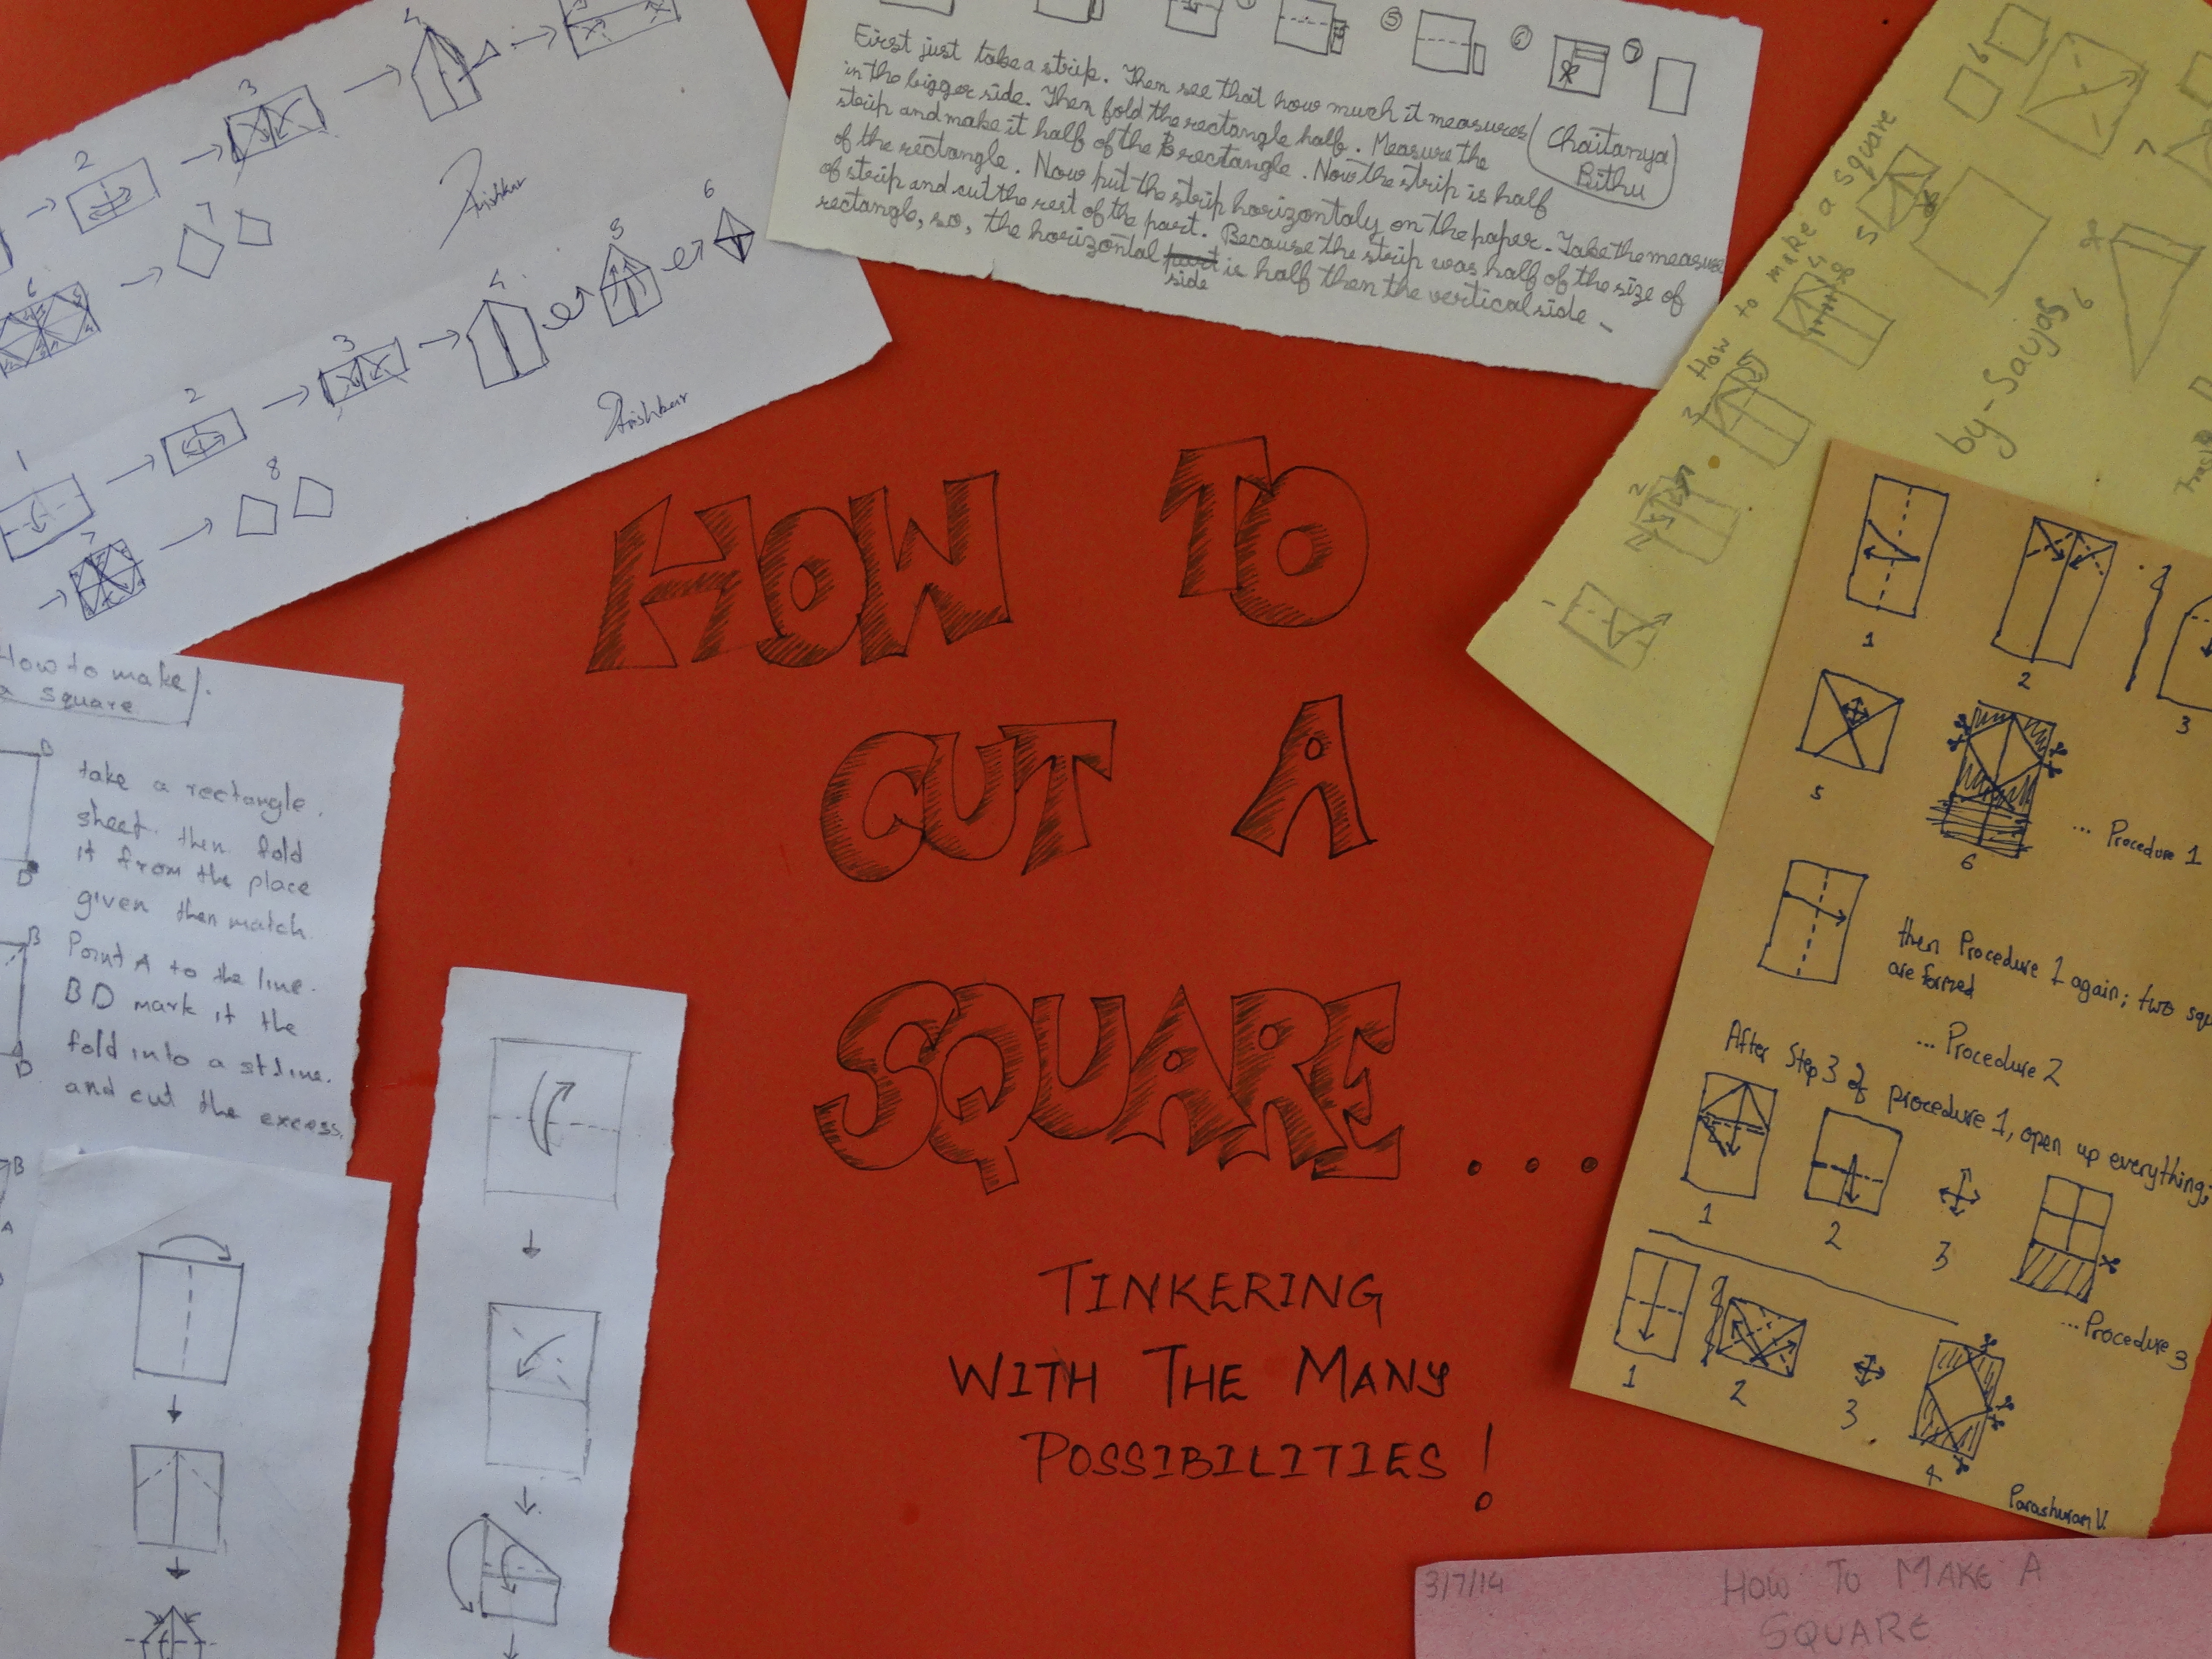 HOW TO
CUT A
SQUARE...
TINKERING
WITH THE MANY
POSSIBILITIES!
2
3
4
2
3
4
5
6
7
6
1
8
7
5
6
7
First just take a strip. Then see that how much it measures
in the bigger side. Then fold the rectangle half. Measure the
strip and make it half of the rectangle. Now the strip is half
of the rectangle. Now put the strip horizontaly on the paper. Take the measure
of strip and cut the rest of the part. Because the strip was half of the size of
rectangle, so, the horizontal side is half then the vertical side
Chaitanya
Rithu
How to make a square
by-Saujas
6
7
5
4
3
2
1
6
How to make
a square
take a rectangle.
sheet. then fold
it from the place
given then match
Point A to the line.
BD mark it the
fold into a st.line.
and cut the excess.
D
B
D
B
A
1
2
3
5
6
... Procedure 1
then Procedure 1 again; two squ
are formed
... Procedure 2
After Step 3 of procedure 1, open up everything;
1
2
3
... Procedure 3
1
2
3
4
Parashuram V.
3/7/14
HOW TO MAKE A
SQUARE